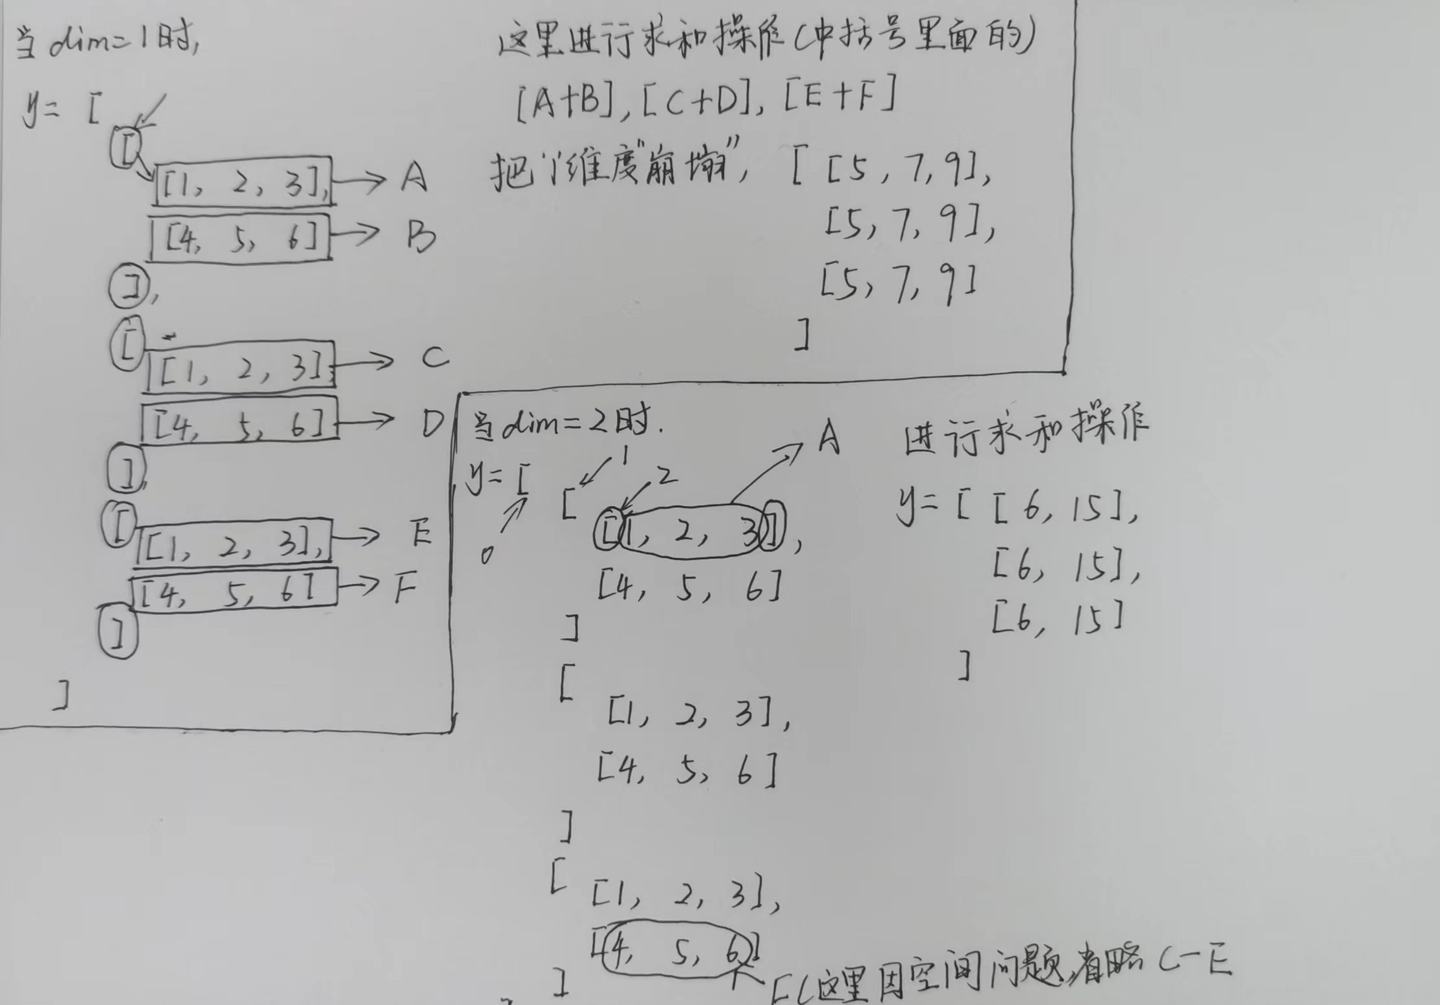 当dim=1时,
y= [
[
[1, 2, 3], → A
[4, 5, 6] → B
],
[
[1, 2, 3], → C
[4, 5, 6] → D
],
[
[1, 2, 3], → E
[4, 5, 6] → F
]
]
这里进行求和操作(中括号里面的)
[A+B], [C+D], [E+F]
把'1'维度"崩塌", [ [5, 7, 9],
[5, 7, 9],
[5, 7, 9]
]
当dim=2时.
y= [
0
[ 1
2
[1, 2, 3], A
[4, 5, 6]
]
[
[1, 2, 3],
[4, 5, 6]
]
[
[1, 2, 3],
[4, 5, 6]
]
F(这里因空间问题,省略C-E
进行求和操作
y= [ [6, 15],
[6, 15],
[6, 15]
]